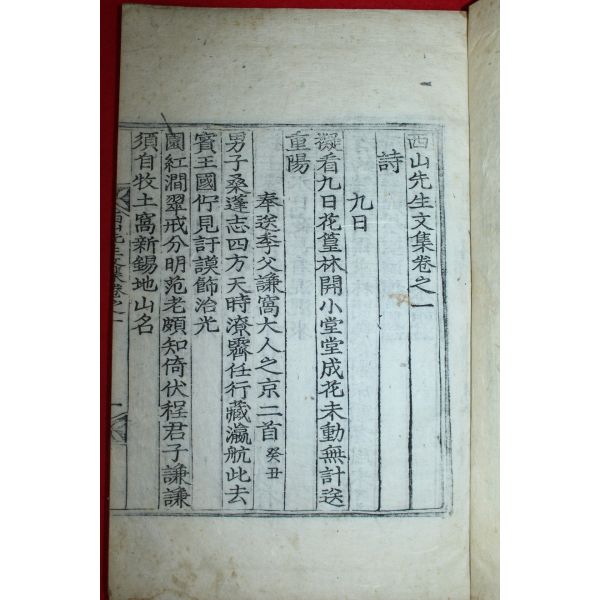 西山先生文集卷之一
詩
九日
擬看九日花篁林開小堂堂成花未動無計送
重陽
奉送季父謙窩大人之京二首 癸丑
男子桑蓬志四方天時潦霽任行藏瀛航此去
賓王國佇見訏謨飾治光
園紅澗翠戒分明范老頗知倚伏程君子謙謙
須自牧土窩新錫地山名
西山先生文集卷之一
一